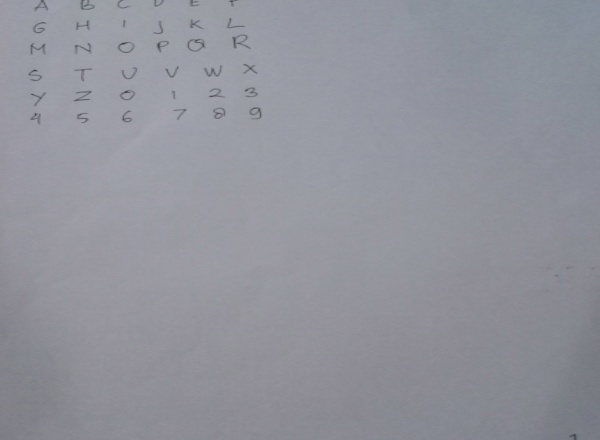 A B C D E F
G H I J K L
M N O P Q R
S T U V W X
Y Z 0 1 2 3
4 5 6 7 8 9